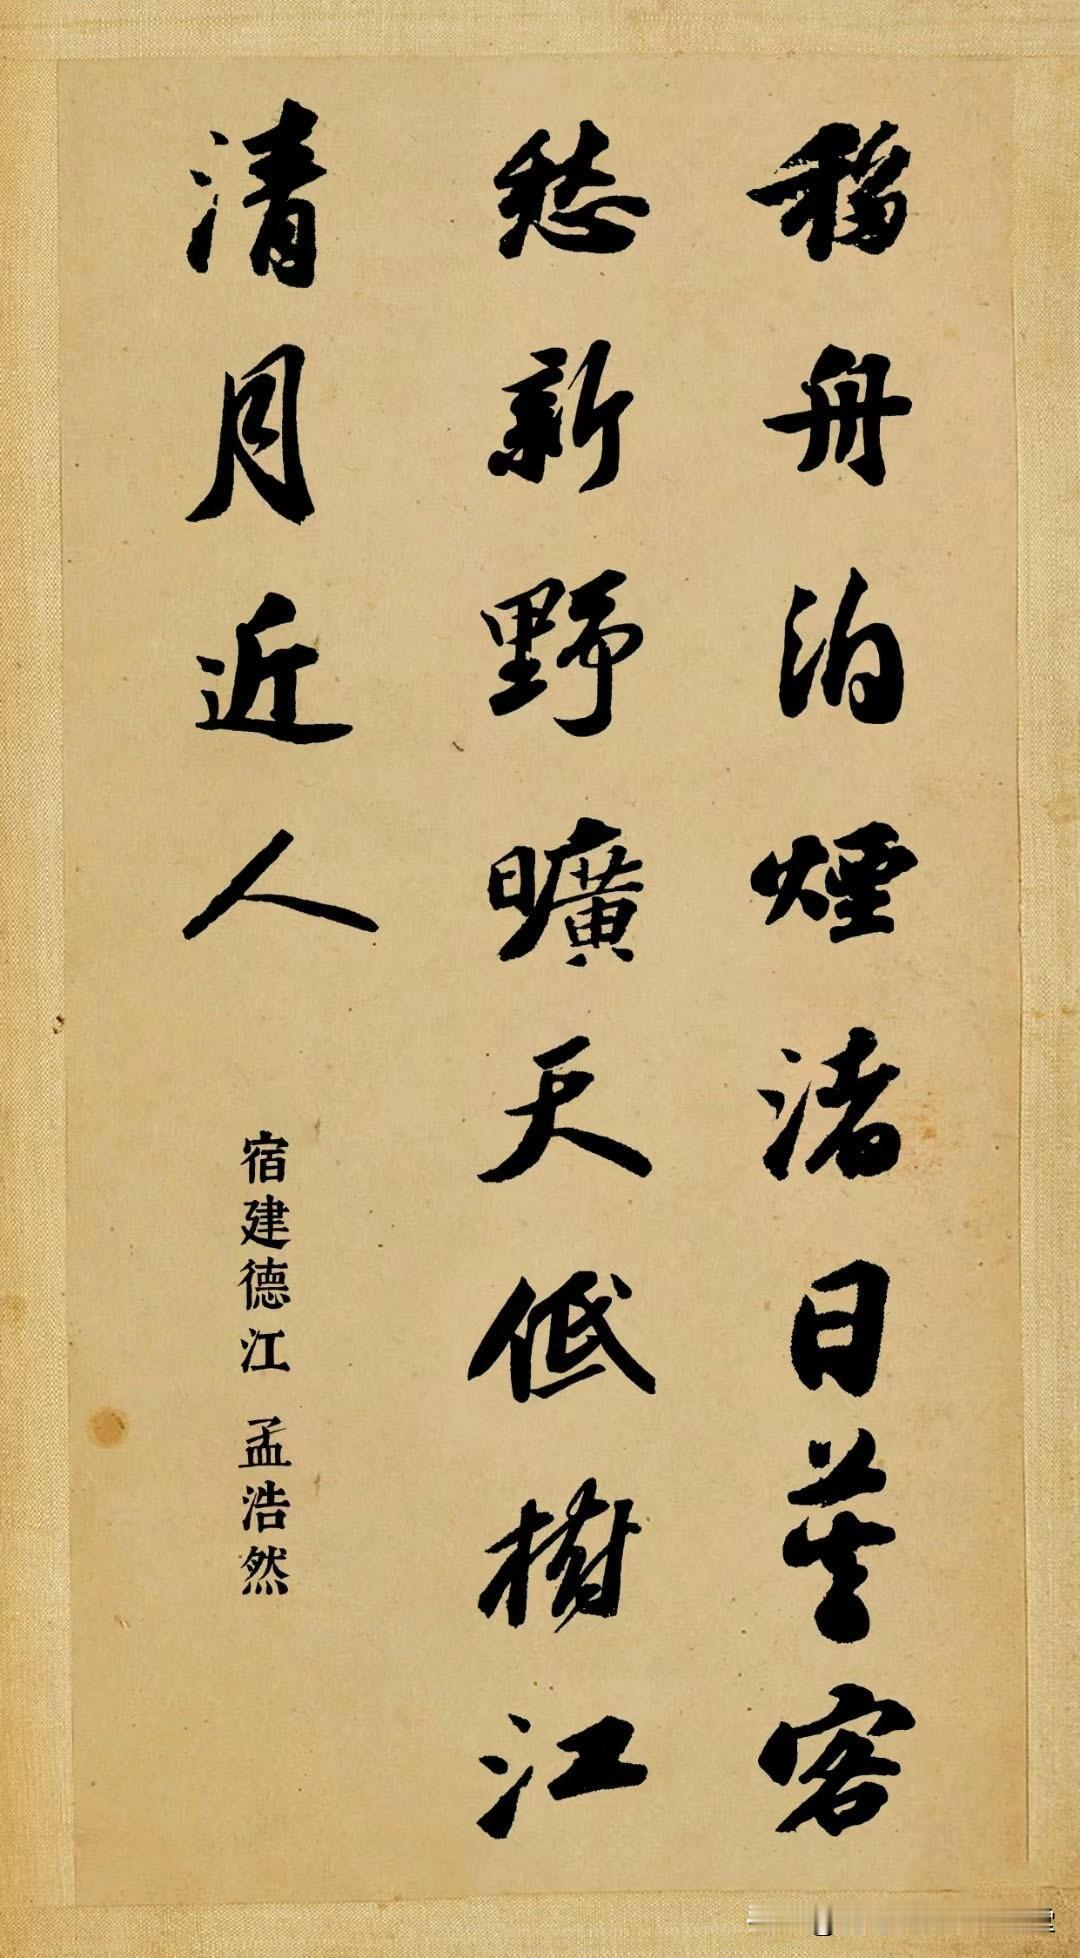 移舟泊煙渚日暮客
愁新野曠天低樹江
清月近人
宿建德江 孟浩然